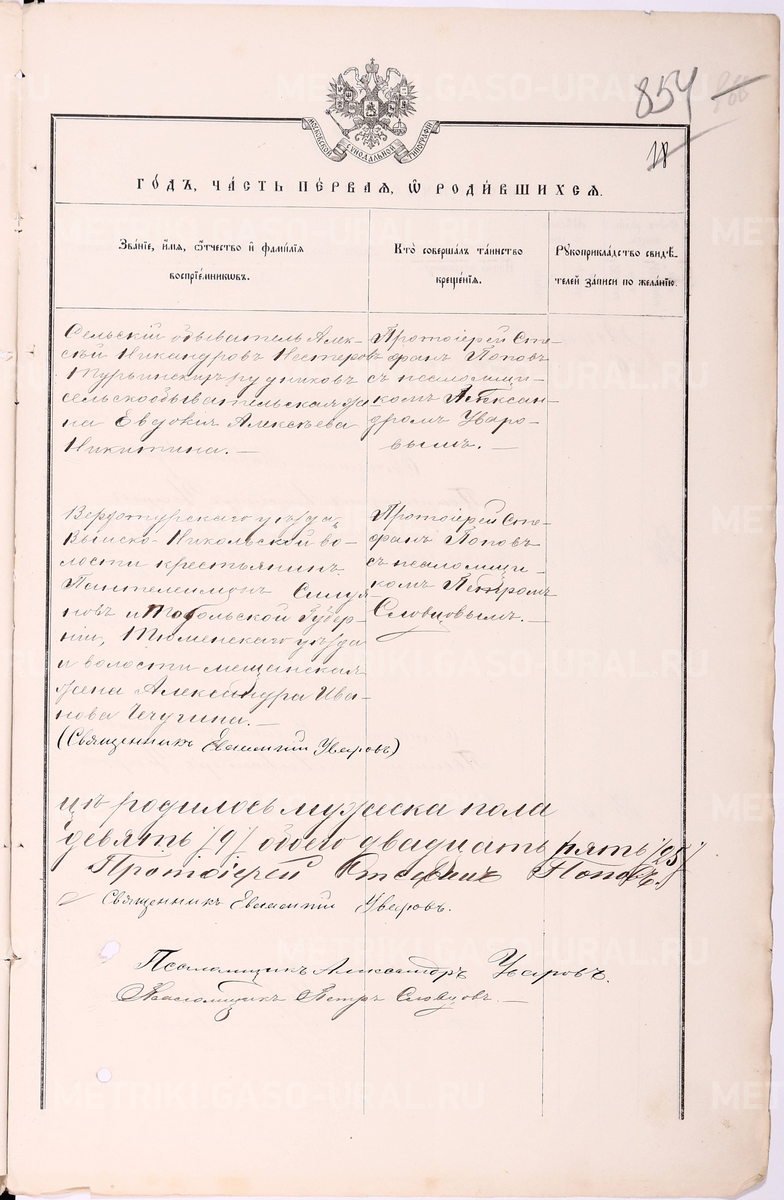 854
18
МОСКОВСКОЙ СѴНОДАЛЬНОЙ ТИПОГРАФІИ
ГО́ДЪ, ЧА́СТЬ ПЕ́РВАЯ, Ѡ РОДИ́ВШИХСЯ.
Зва́ніе, и́мя, ѻ́тчество и фами́лія
воспріе́мникѡвъ.
Кто̀ соверша́лъ та́инство
креще́нія.
Рꙋкоприкла́дство свидѣ́-
телей за́писи по жела́нію.
Сельскій обыватель Алек-
сѣй Никандровъ Нестеровъ
Турьинскихъ рудниковъ
сельскообывательская же
на Евдокія Алексѣева
Никитина. —
Протоіерей Сте-
фанъ Поповъ
съ псаломщи-
комъ Алексан-
дромъ Уваро-
вымъ. —
Верхотурскаго уѣзда,
Выйско-Никольской во-
лости крестьянинъ
Пантелеимонъ Силуя-
новъ и Тобольской Губер-
ніи, Тюменскаго уѣзда
и волости мещанская
жена Александра Ива-
нова Чечугина. —
(Священникъ Евлампій Уваровъ)
Протоіерей Сте-
фанъ Поповъ
съ псаломщи-
комъ Петромъ
Словцовымъ. —
цѣ родилось мужеска пола
девять /9/ обоего двадцать пять /25/
Протоіерей Стефанъ Поповъ.
Священникъ Евлампій Уваровъ.
Псаломщикъ Александръ Уваровъ.
Псаломщикъ Петръ Словцовъ. —
METRIKI.GASO-URAL.RU